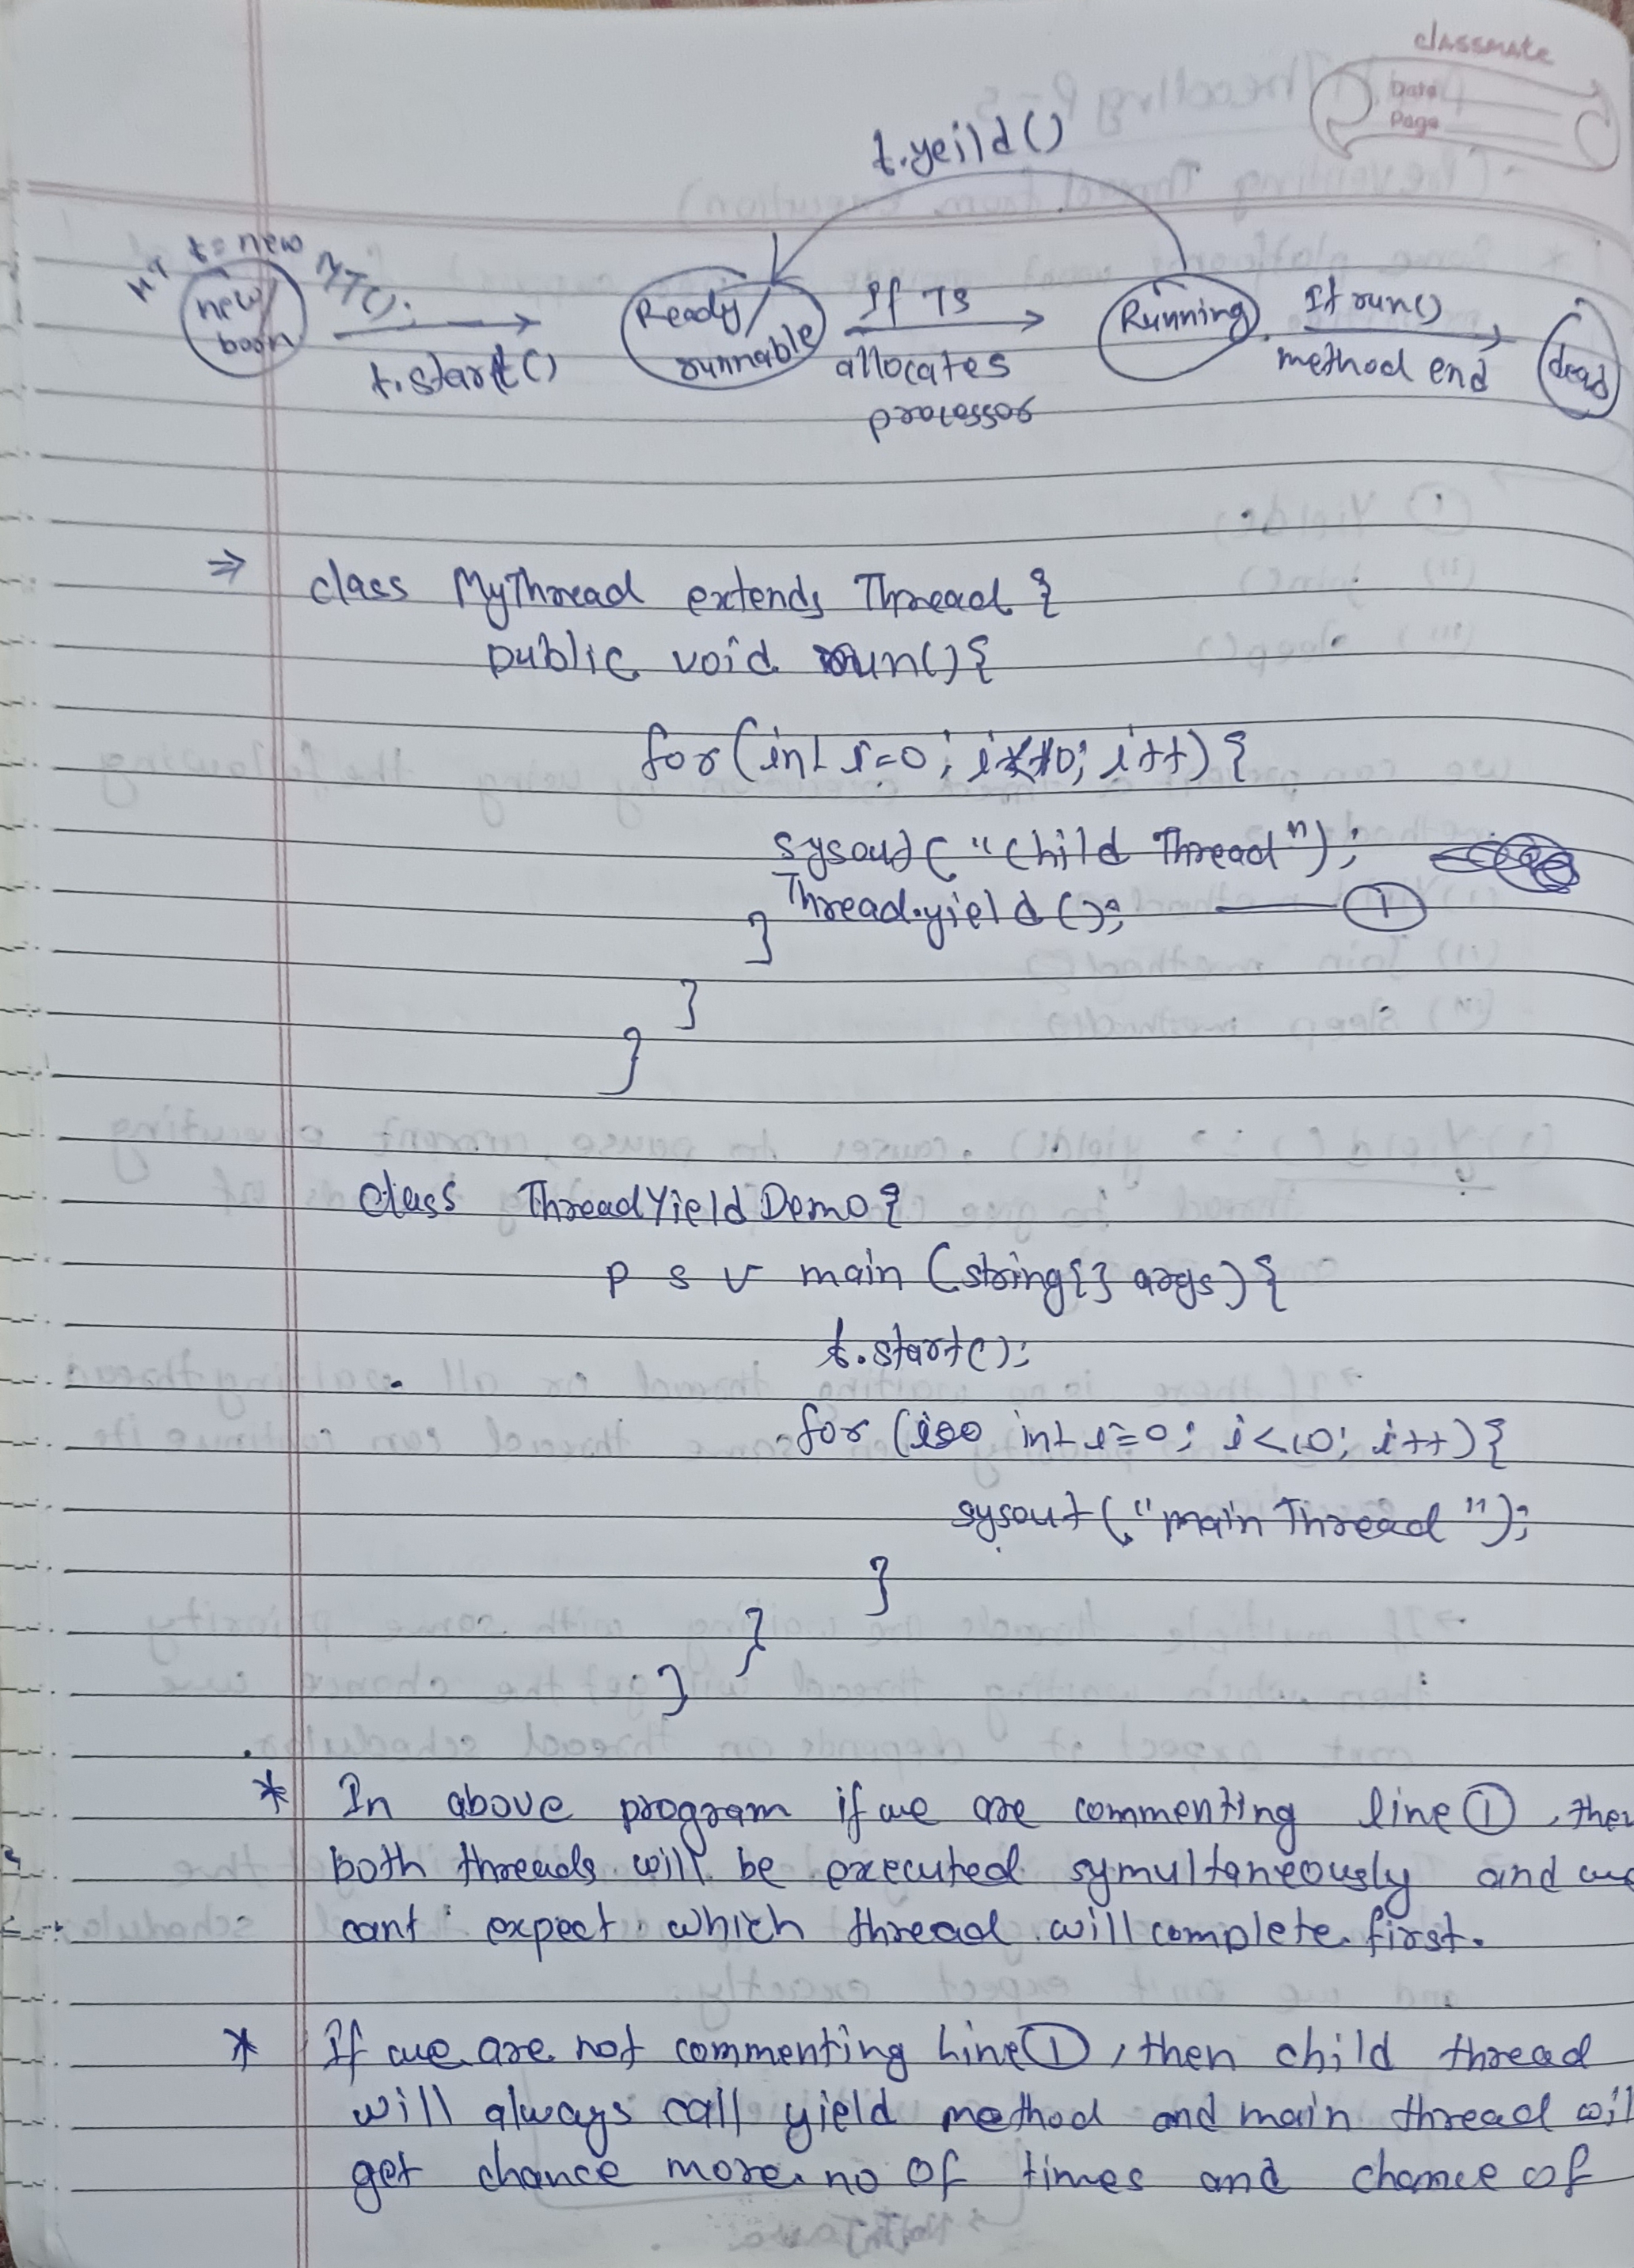 classmate
Date
Page
t.yeild()
MT t = new MT();
new/
born
t.start()
Ready/
runnable
If TS
allocates
processor
Running
If run()
method end
dead
⇒ class MyThread extends Thread {
public void run(){
for(int i=0; i<10; i++){
sysout("Child Thread");
Thread.yield(); —— ①
}
}
}
class ThreadYieldDemo{
p s v main (string[] args){
t.start();
for (int i=0; i<10; i++){
sysout("main Thread");
}
}
}
* In above program if we are commenting line ①, then
both threads will be executed symultaneously and we
cant expect which thread will complete first.
* If we are not commenting line ①, then child thread
will always call yield method and main thread wil
get chance more no of times and chance of